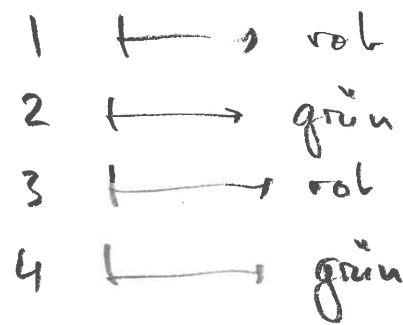 1 rot
2 grün
3 rot
4 grün